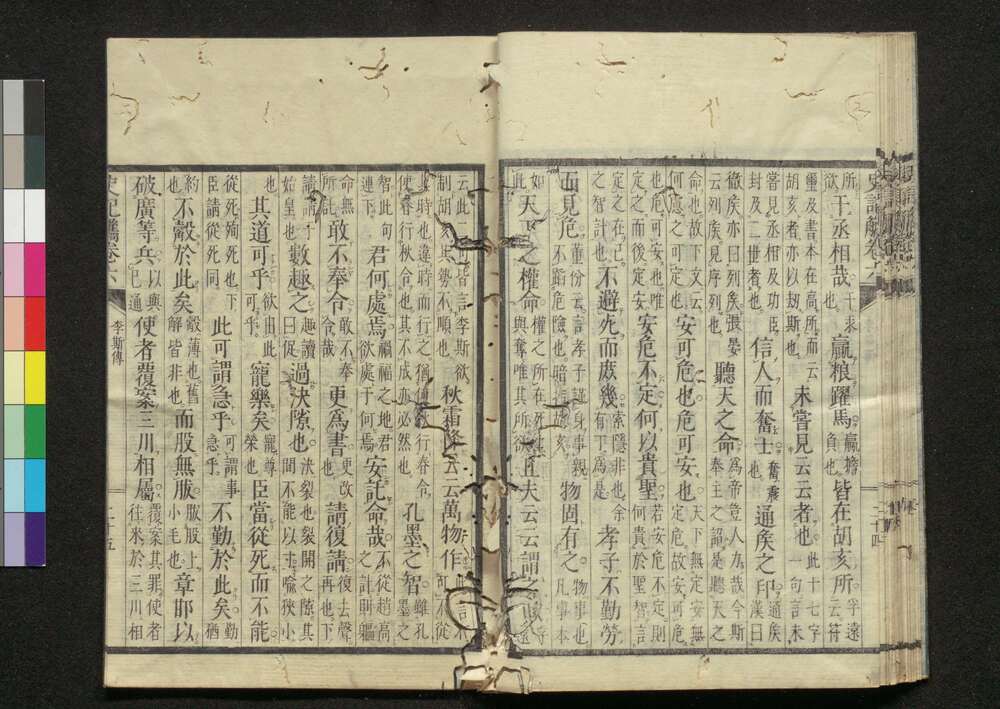 所欲于丞相哉 于求也 贏粮躍馬 贏擔負也 皆在胡亥所
璽及書本在高所而云胡亥者亦以刼斯也 未嘗見云云者也 此十七字一句言未
嘗見丞相及功臣封及二世者也 信人而奮士 奮震也 通矦之印 通矦漢曰
徹矦亦曰列矦張晏云列矦見序列也 聽天之命 為帝豈人力哉今斯奉主之詔是聽天之
命也故下文云何慮之可定也 安可危也危可安也 天下無定安無定危故安可危
也危可安也唯定之而後定安 安危不定何以貴聖 若安危不定則何貴於聖智言
定之在己之智計也 不避死而庶幾 索隱非也余有丁為是 孝子不勤勞
而見危 董份云言孝子謹身事親不蹈危險也暗指胡亥 物固有之 物事也凡事本
如此 天下之權命 權之所在死生與奪唯其所欲 且夫云云謂之
言李斯欲制胡亥其勢不順也 秋霜降云云萬物作
其時也違時而行之猶使春行秋令也其不成亦必然也 孔墨之智 雖孔墨之
智此句連下 君何處焉 禍福之地君欲處于何焉 安託命哉 不從趙高之計則軀
命無所託 敢不奉令 敢不奉令哉 更為書 更改也 請復請 復去聲再也下
數趣之 趣讀曰促 過決隙也 決裂也裂開之隙其間不能以圭喻狹小
也 其道可乎 欲由此可乎 寵樂矣 寵尊榮也 臣當從死而不能
從死殉死也下臣請從死同 此可謂急乎 可謂事急乎 不勤於此矣 勤猶
約也 不觳於此矣 觳薄也舊解皆非也 而股無胈 胈股上小毛也 章邯以
破廣等兵 以與已通 使者覆案三川相屬 覆案其罪使者往來於三川相
李斯傳
二十五